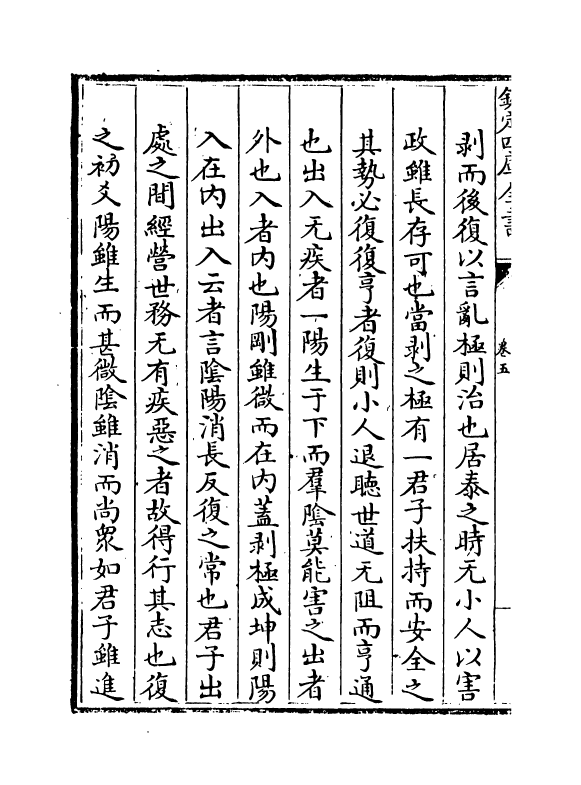 欽定四庫全書
卷五
剥而後復以言亂極則治也居泰之時无小人以害
政雖長存可也當剥之極有一君子扶持而安全之
其勢必復復亨者復則小人退聴世道无阻而亨通
也出入无疾者一陽生于下而羣隂莫能害之出者
外也入者内也陽剛雖微而在内蓋剥極成坤則陽
入在内出入云者言隂陽消長反復之常也君子出
處之間經營世務无有疾惡之者故得行其志也復
之初爻陽雖生而甚微隂雖消而尚衆如君子雖進